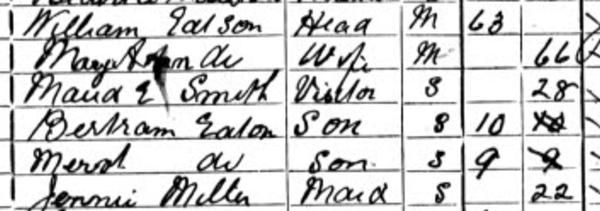 William Eatson Head M 63
do Wife M 66
Maud E Smith Visitor S 28
Bertram Eaton Son S 10
do Son S 9 9
Jennie Miller Maid S 22